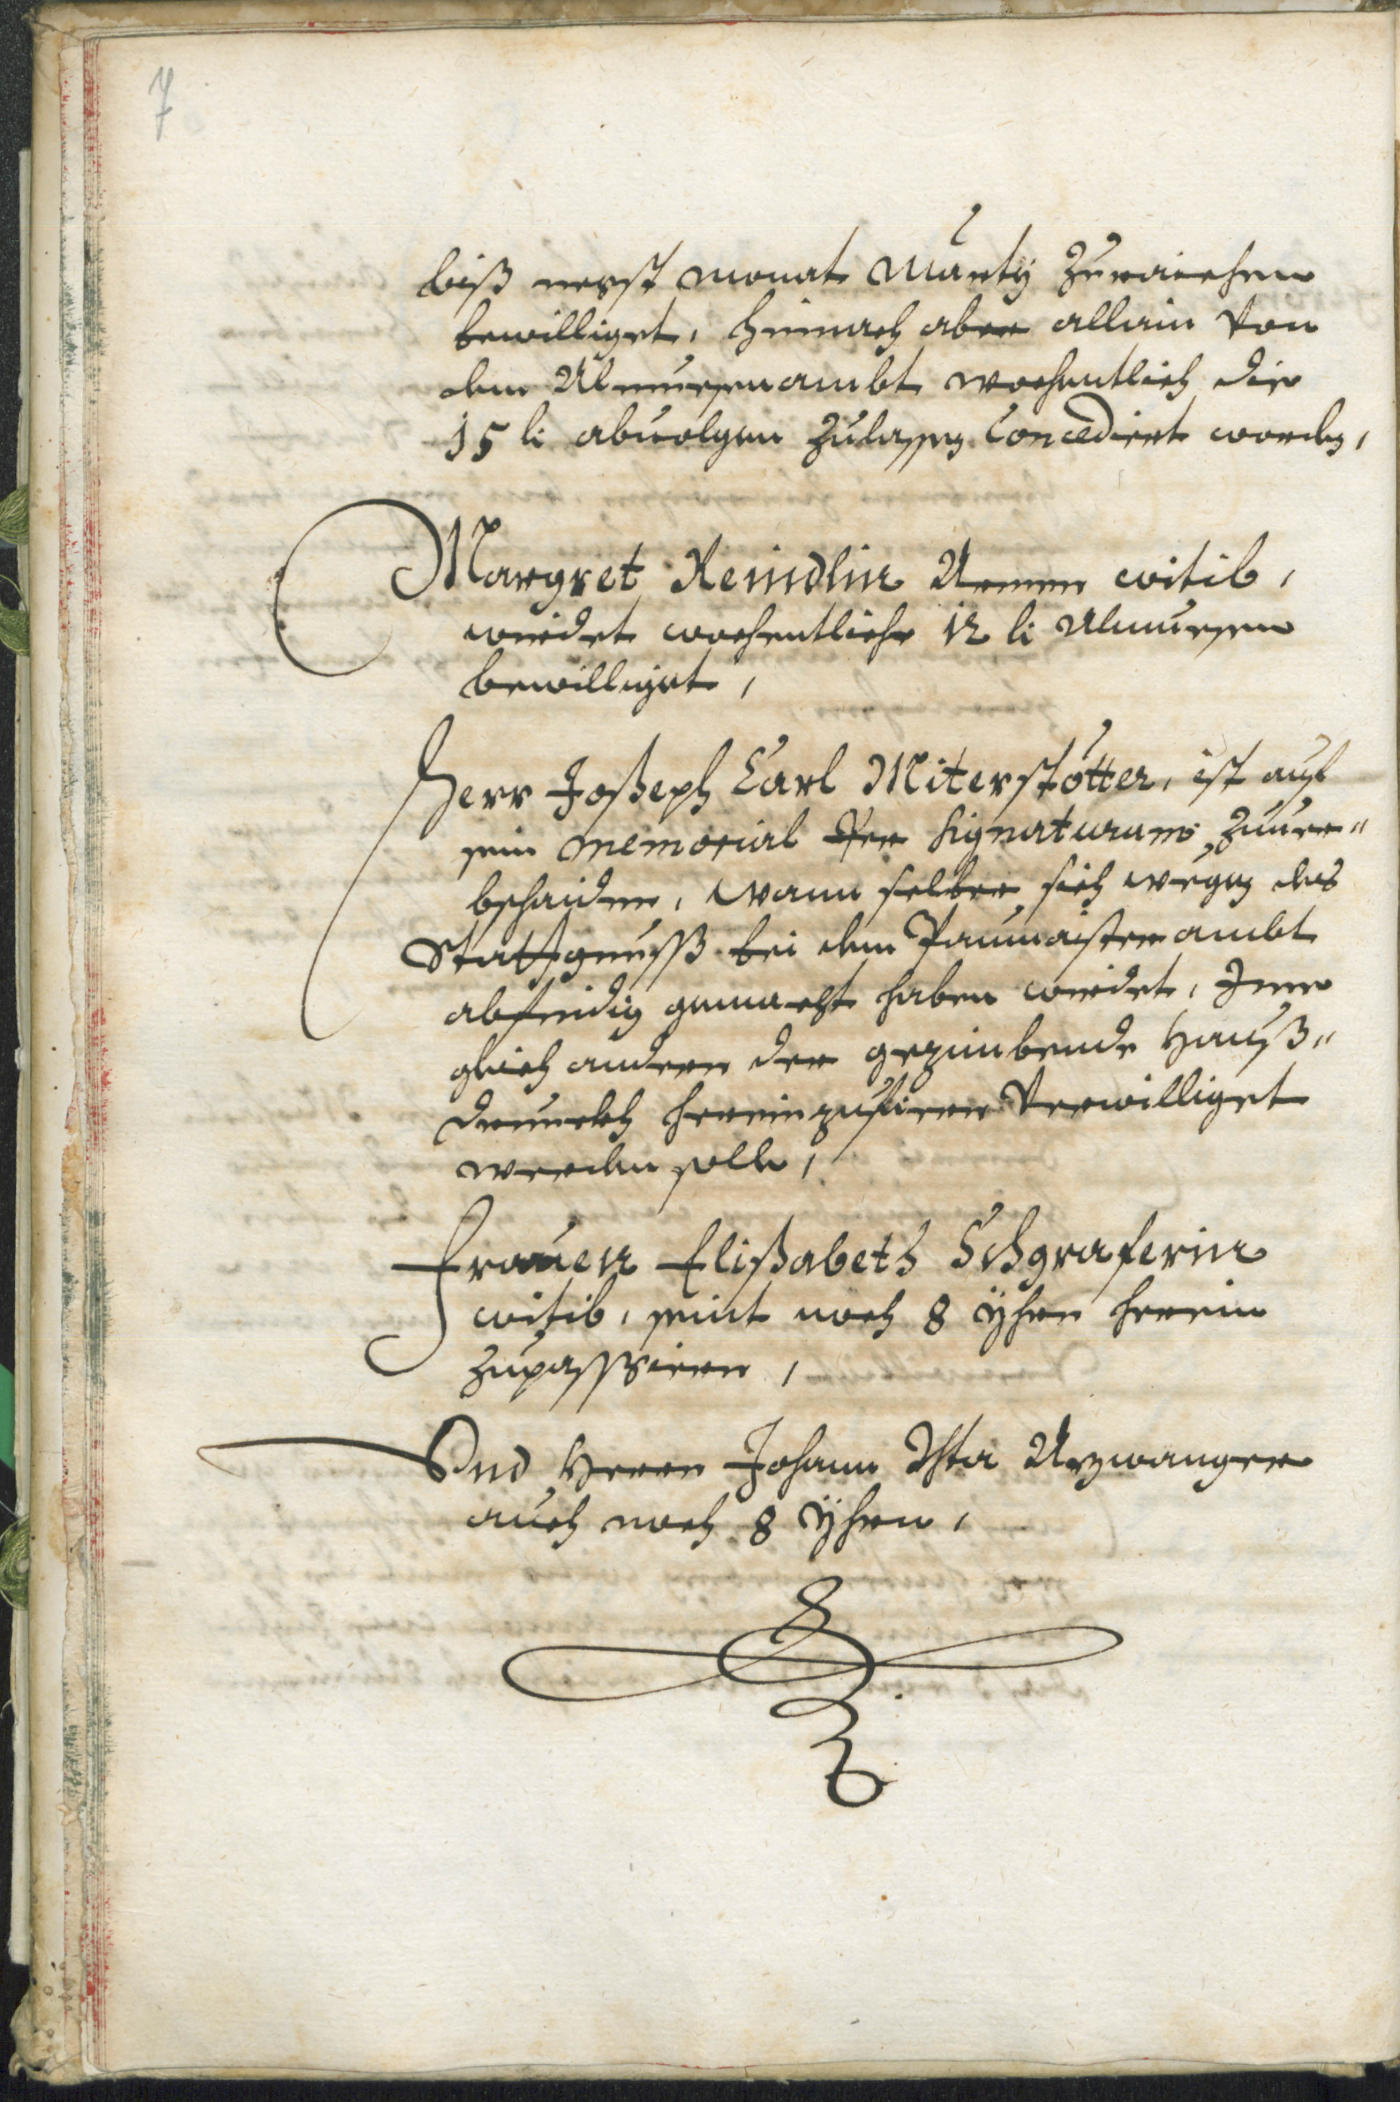 7
biß negst monat Marty Zuraichen
bewilliget, hinnach aber allain von
dem Almuesenambt wochentlich die
15 k abuolgen Zulassen Concediert worden,
Margret Reindlin Armen witib,
wirdet wochentliche 12 k Almuesen
bewilliget,
Herr Joßeph Carl Miterstötter, ist auf
sein memorial Per signaturam Zuuer„
beschaiden, wann selber sich wegen des
Stattgenuß bei dem Paumaisterambt
abfindig gemacht haben wirdet, Ime
gleich andern der gezimbende Hauß„
trunckh hereinzufiren verwilliget
werden solle,
Frauen Elißabeth Schgraferin
witib, seint noch 8 Yhrn herein
Zupassieren,
Vnd Herrn Johann Azwanger
auch noch 8 Yhrn,